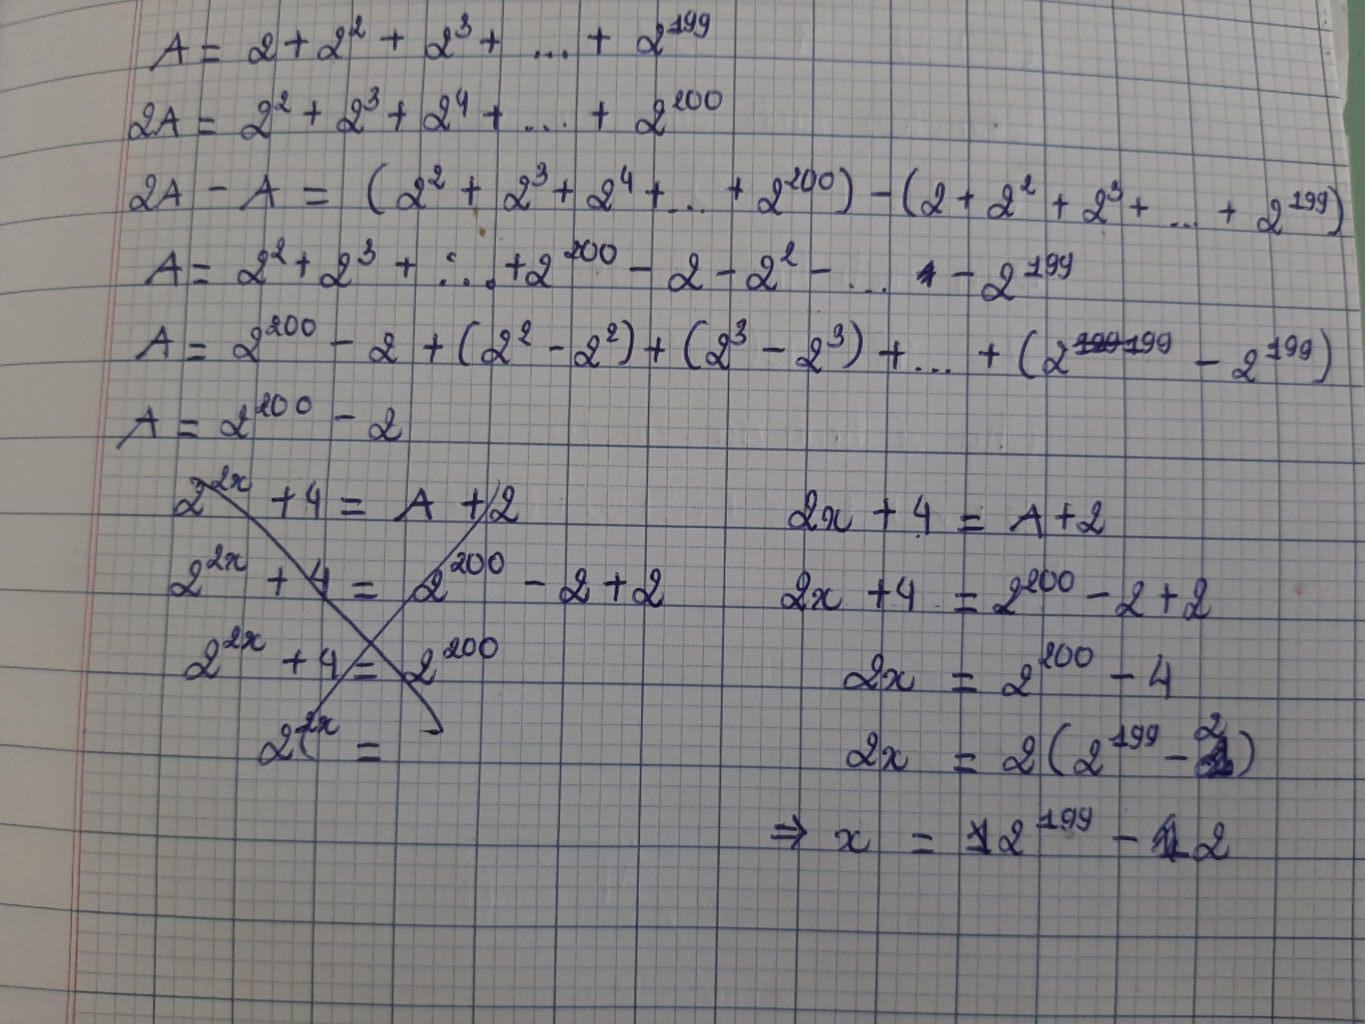 A = 2 + 2² + 2³ + ... + 2¹⁹⁹
2A = 2² + 2³ + 2⁴ + ... + 2²⁰⁰
2A - A = (2² + 2³ + 2⁴ + ... + 2²⁰⁰) - (2 + 2² + 2³ + ... + 2¹⁹⁹)
A = 2² + 2³ + ... + 2²⁰⁰ - 2 - 2² - ... - 2¹⁹⁹
A = 2²⁰⁰ - 2 + (2² - 2²) + (2³ - 2³) + ... + (2¹⁹⁹ - 2¹⁹⁹)
A = 2²⁰⁰ - 2
2²ˣ + 4 = A + 2
2²ˣ + 4 = 2²⁰⁰ - 2 + 2
2²ˣ + 4 = 2²⁰⁰
2²ˣ =
2x + 4 = A + 2
2x + 4 = 2²⁰⁰ - 2 + 2
2x = 2²⁰⁰ - 4
2x = 2(2¹⁹⁹ - 2)
⇒ x = 2¹⁹⁹ - 2